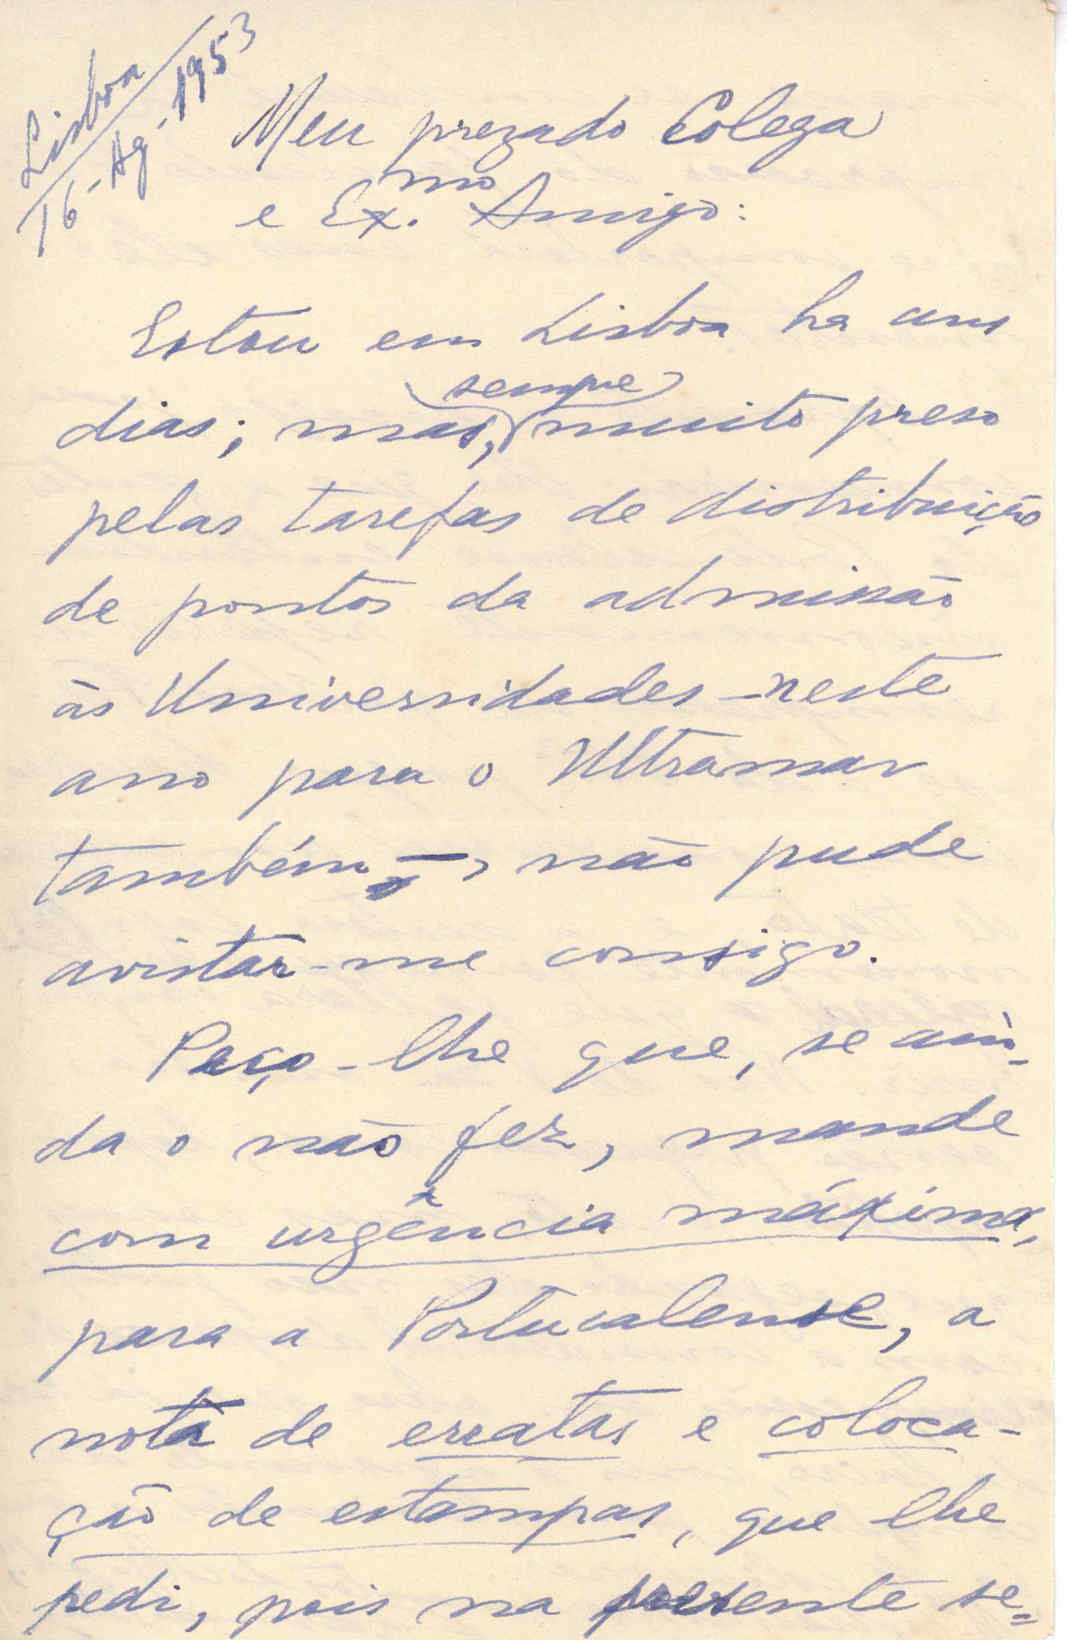 Lisboa
16-Ag-1953
Meu prezado Colega
e Ex.mo Amigo:
Estou em Lisboa ha uns
dias; mas, sempre muito preso
pelas tarefas de distribuição
de pontos da admissão
às Universidades - neste
ano para o Ultramar
também -, não pude
avistar-me consigo.
Peço-lhe que, se ain-
da o não fez, mande
com urgência máxima,
para a Portucalense, a
nota de erratas e coloca-
ção de estampas, que lhe
pedi, pois na presente se=